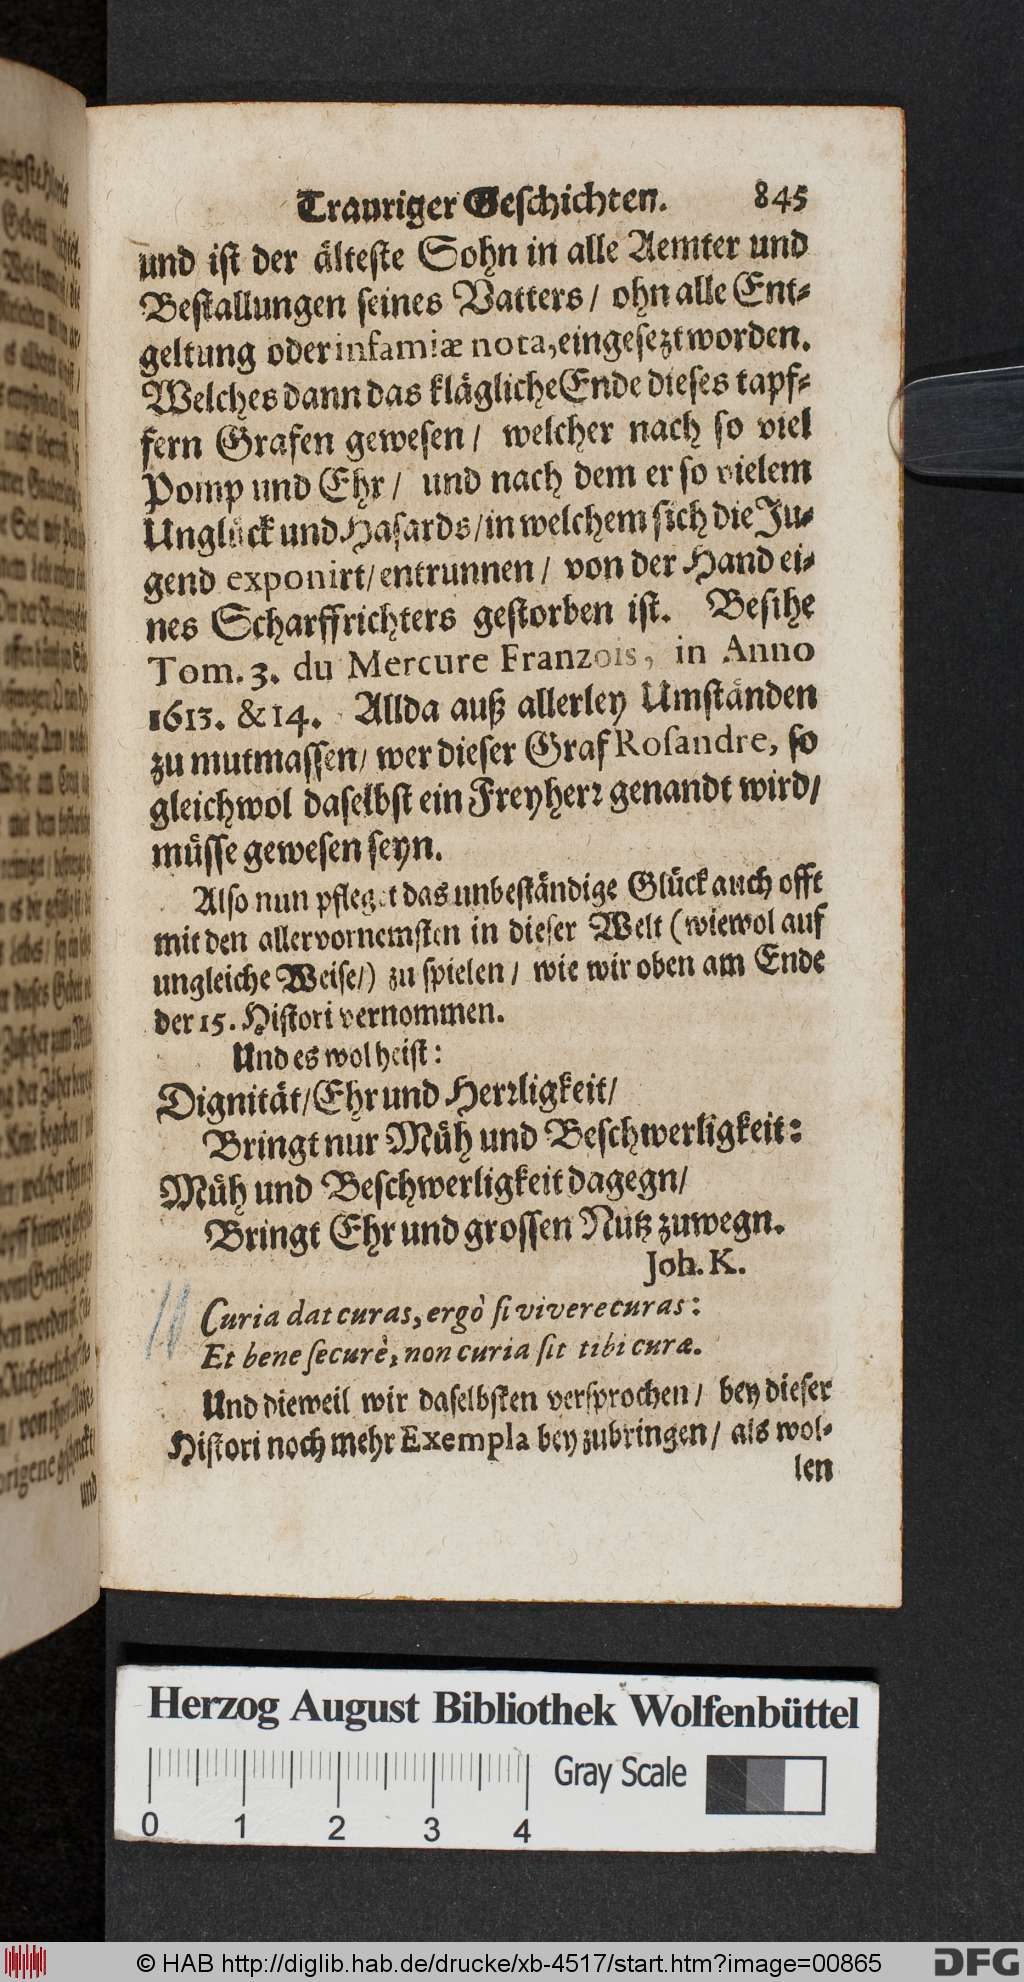 Trauriger Geschichten. 845
und ist der älteste Sohn in alle Aemter und
Bestallungen seines Vatters / ohn alle Ent-
geltung oder infamiæ nota, eingesezt worden.
Welches dann das klägliche Ende dieses tapf-
fern Grafen gewesen / welcher nach so viel
Pomp und Ehr / und nach dem er so vielem
Unglück und Hasards / in welchem sich die Ju-
gend exponirt / entrunnen / von der Hand ei-
nes Scharffrichters gestorben ist. Besihe
Tom. 3. du Mercure Franzois, in Anno
1613. & 14. Allda auß allerley Umständen
zu mutmassen / wer dieser Graf Rosandre, so
gleichwol daselbst ein Freyherr genandt wird /
müsse gewesen seyn.
Also nun pfleget das unbeständige Glück auch offt
mit den allervornemsten in dieser Welt (wiewol auf
ungleiche Weise /) zu spielen / wie wir oben am Ende
der 15. Histori vernommen.
Und es wol heist:
Dignität / Ehr und Herrligkeit /
Bringt nur Müh und Beschwerligkeit:
Müh und Beschwerligkeit dagegn /
Bringt Ehr und grossen Nutz zuwegn.
Joh. K.
Curia dat curas, ergò si vivere curas:
Et bene securè, non curia sit tibi curæ.
Und dieweil wir daselbsten versprochen / bey dieser
Histori noch mehr Exempla beyzubringen / als wol-
len
und
Herzog August Bibliothek Wolfenbüttel
Gray Scale
0 1 2 3 4
© HAB http://diglib.hab.de/drucke/xb-4517/start.htm?image=00865
DFG